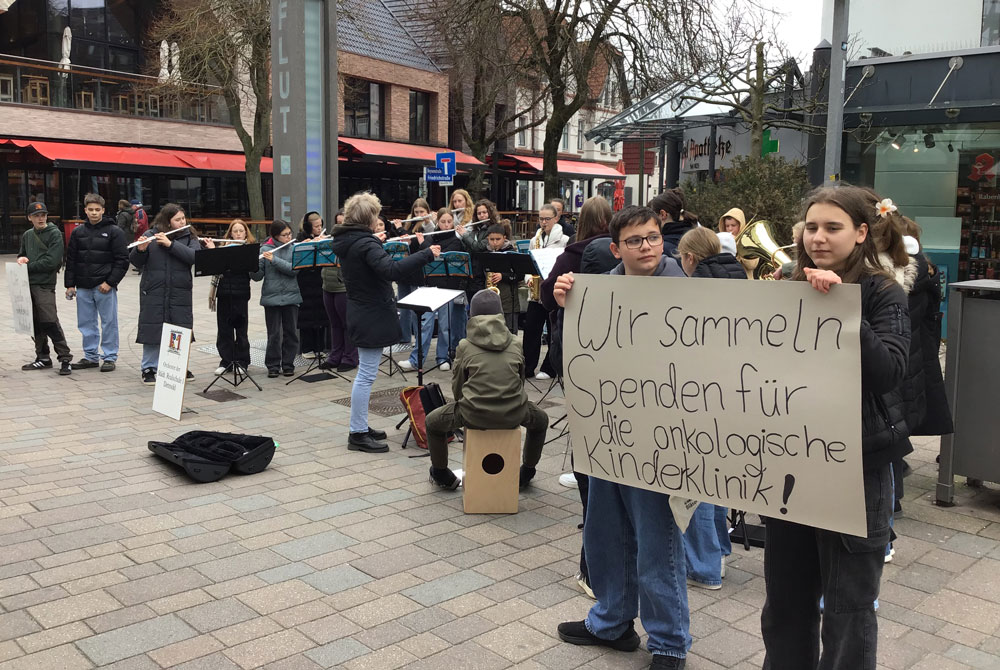 FLUT
Apotheke
Wir sammeln
Spenden für
die onkologische
Kinderklinik!